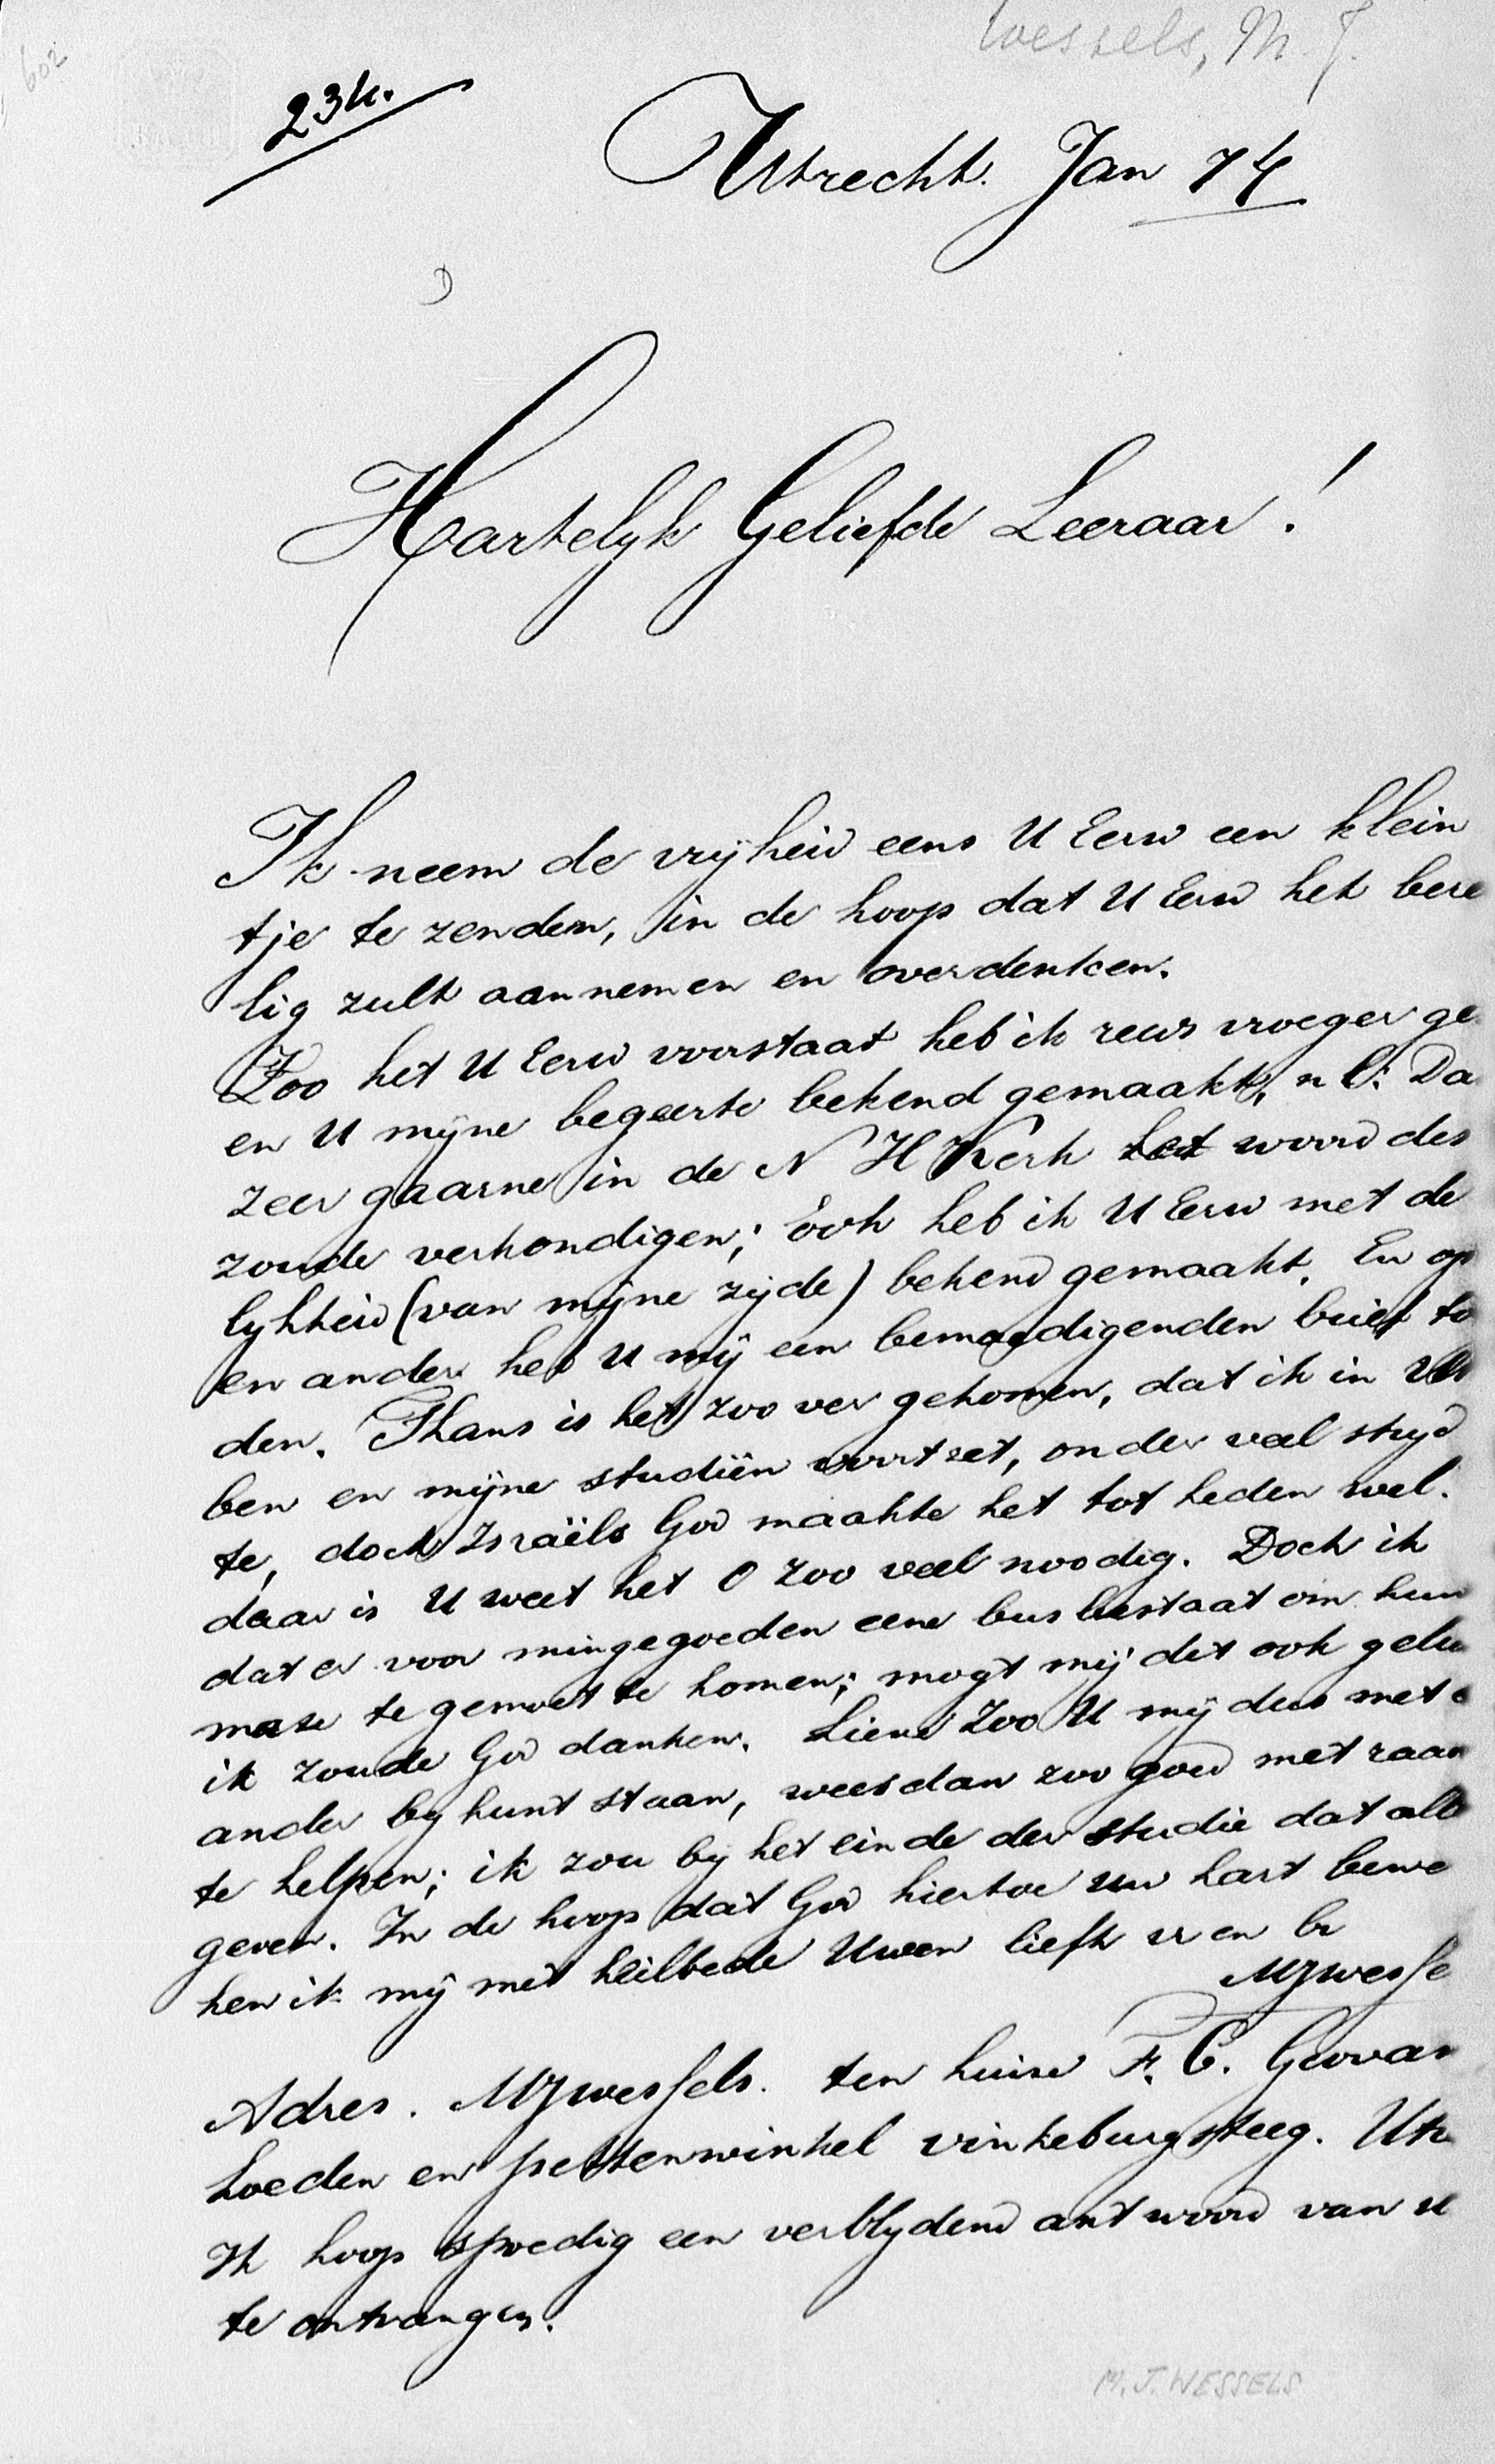 Wessels, M. J.
602
234.
Utrecht. Jan 74
Hartelyk Geliefde Leeraar!
Ik neem de vrijheid eens U Eerw een klein
tje te zenden, in de hoop dat U Eerw het bere
lig zult aannemen en overdenken.
Zoo het U Eerw voorstaat heb ik reeds vroeger ge
en U mijne begeerte bekend gemaakt, nl: Da
zeer gaarne in de N H Kerk het woord des
zoude verkondigen; Ook heb ik U Eerw met de
lykheid (van mijne zijde) bekend gemaakt. En op
en ander heb U mij een bemoedigenden brief to
den. Thans is het zoo ver gekomen, dat ik in
ben en mijne studiën voortzet, onder veel stryd
te, doch Israëls God maakte het tot heden wel.
daar is U weet het O zoo veel noodig. Doch ik
dat er voor mingegoeden eene bus bestaat om hun
te gemoet te komen; mogt mij dit ook gelu
ik zoude God danken. Lieve Zoo U mij dus met
ander by kunt staan, wees dan zoo goed met raad
te helpen; ik zou by het einde der studie dat alle
geven. In de hoop dat God hiertoe uw hart bewe
ken ik mij met heilbede Uwen liefh vr en br
MJWesse
Adres. MJWessels. ten huize F. C.
hoeden en pettenwinkel vinkeburgsteeg. Utr
Ik hoop spoedig een verblydend antwoord van u
te ontvangen.
M. J. WESSELS